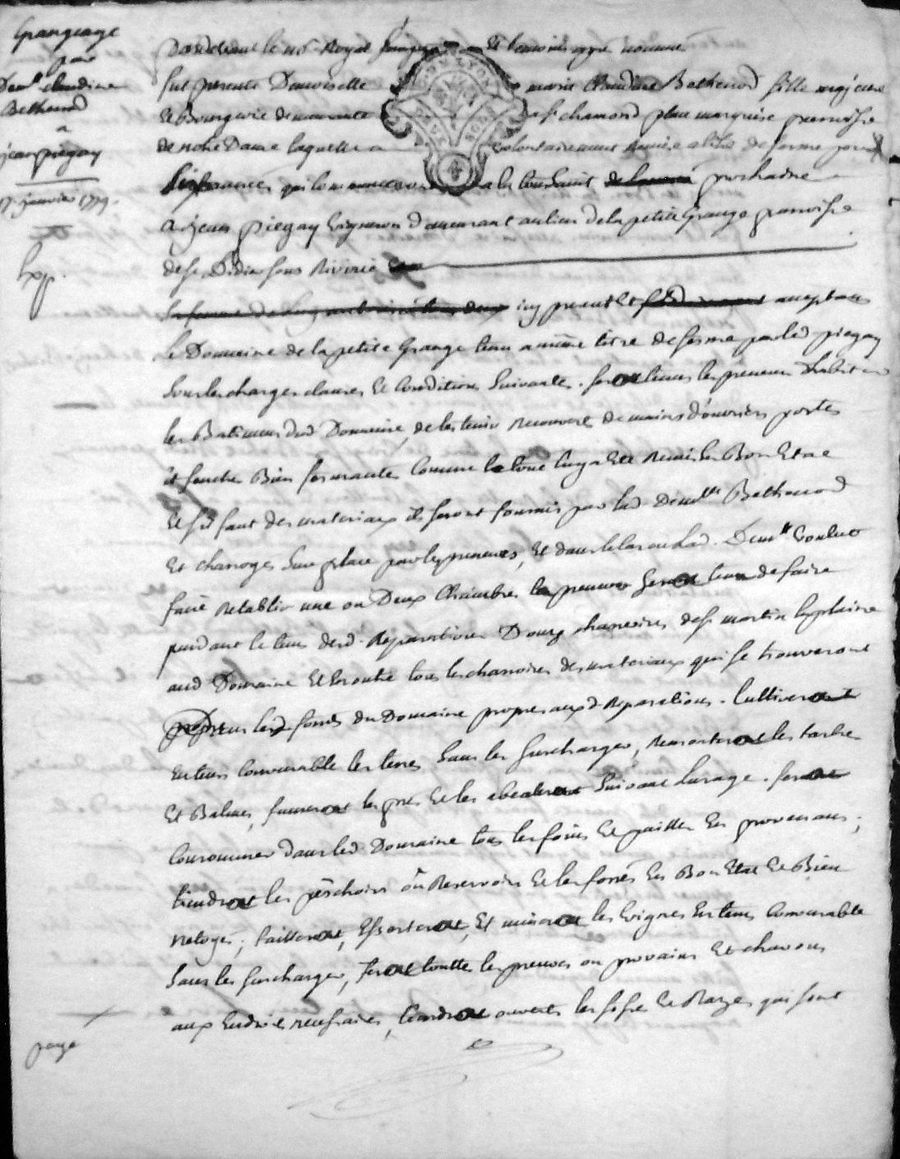 Grangeage
par
Dem.lle Claudine
Bethenod
a
jean piegay
17. janvier 1779.
Exp.
Pardevant le no.re Royal soussigné Et temoins apres nommés
fut presente Demoiselle marie Claudine Bethenod fille majeure
et Bourgeoise demeurante a St chamond place marquise parroisse
de notre Dame laquelle a volontairement Remis a titre de ferme pour
six années qui commenceront a la toussaint prochaine
a jean piegay vigneron demeurant au lieu de la petite Grange parroisse
de St Didier sous Riverie
icy present Et acceptant
Le Domaine de la petite Grange tenu a même titre de ferme par led piegay
sous les charges clauses Et Conditions suivantes. sera tenu le preneur d'habiter
les Batiments dud Domaine, de les tenir Recouverts de mains d'ouvriers portes
et fenetres Bien fermantes Comme Et Remis en Bon Etat
Et s'il faut des materiaux ils seront fournis par lad Dem.lle Bethenod
Et charroyés sur place par le preneur, Et dans le cas ou lad. Dem.lle Voulut
faire Retablir une ou Deux Chambres le preneur sera tenu de faire
pendant le tems desd. Reparations Douze charrois de St martin la plaine
aud Domaine Et En outre tous les charrois des materiaux qui se trouveront
sur les fonds du Domaine propres auxd Reparations. Cultivera
En tems Convenable les terres sans les surcharger, Remontera les
Et Balmes, fumera les prés Et les suivant l'usage. fera
Consommer dans led Domaine tous les foins Et pailles En provenans ;
tiendra les pêchoirs ou Reservoirs Et les fossés En Bon Etat Et Bien
netoyés ; taillera, Essertera, Et minera les Vignes En tems Convenable
sans les surcharger, fera touttes les preuves ou provains Et chavons
aux Endroits necessaires, tiendra ouverts les fossés Et Razes qui sont
paye